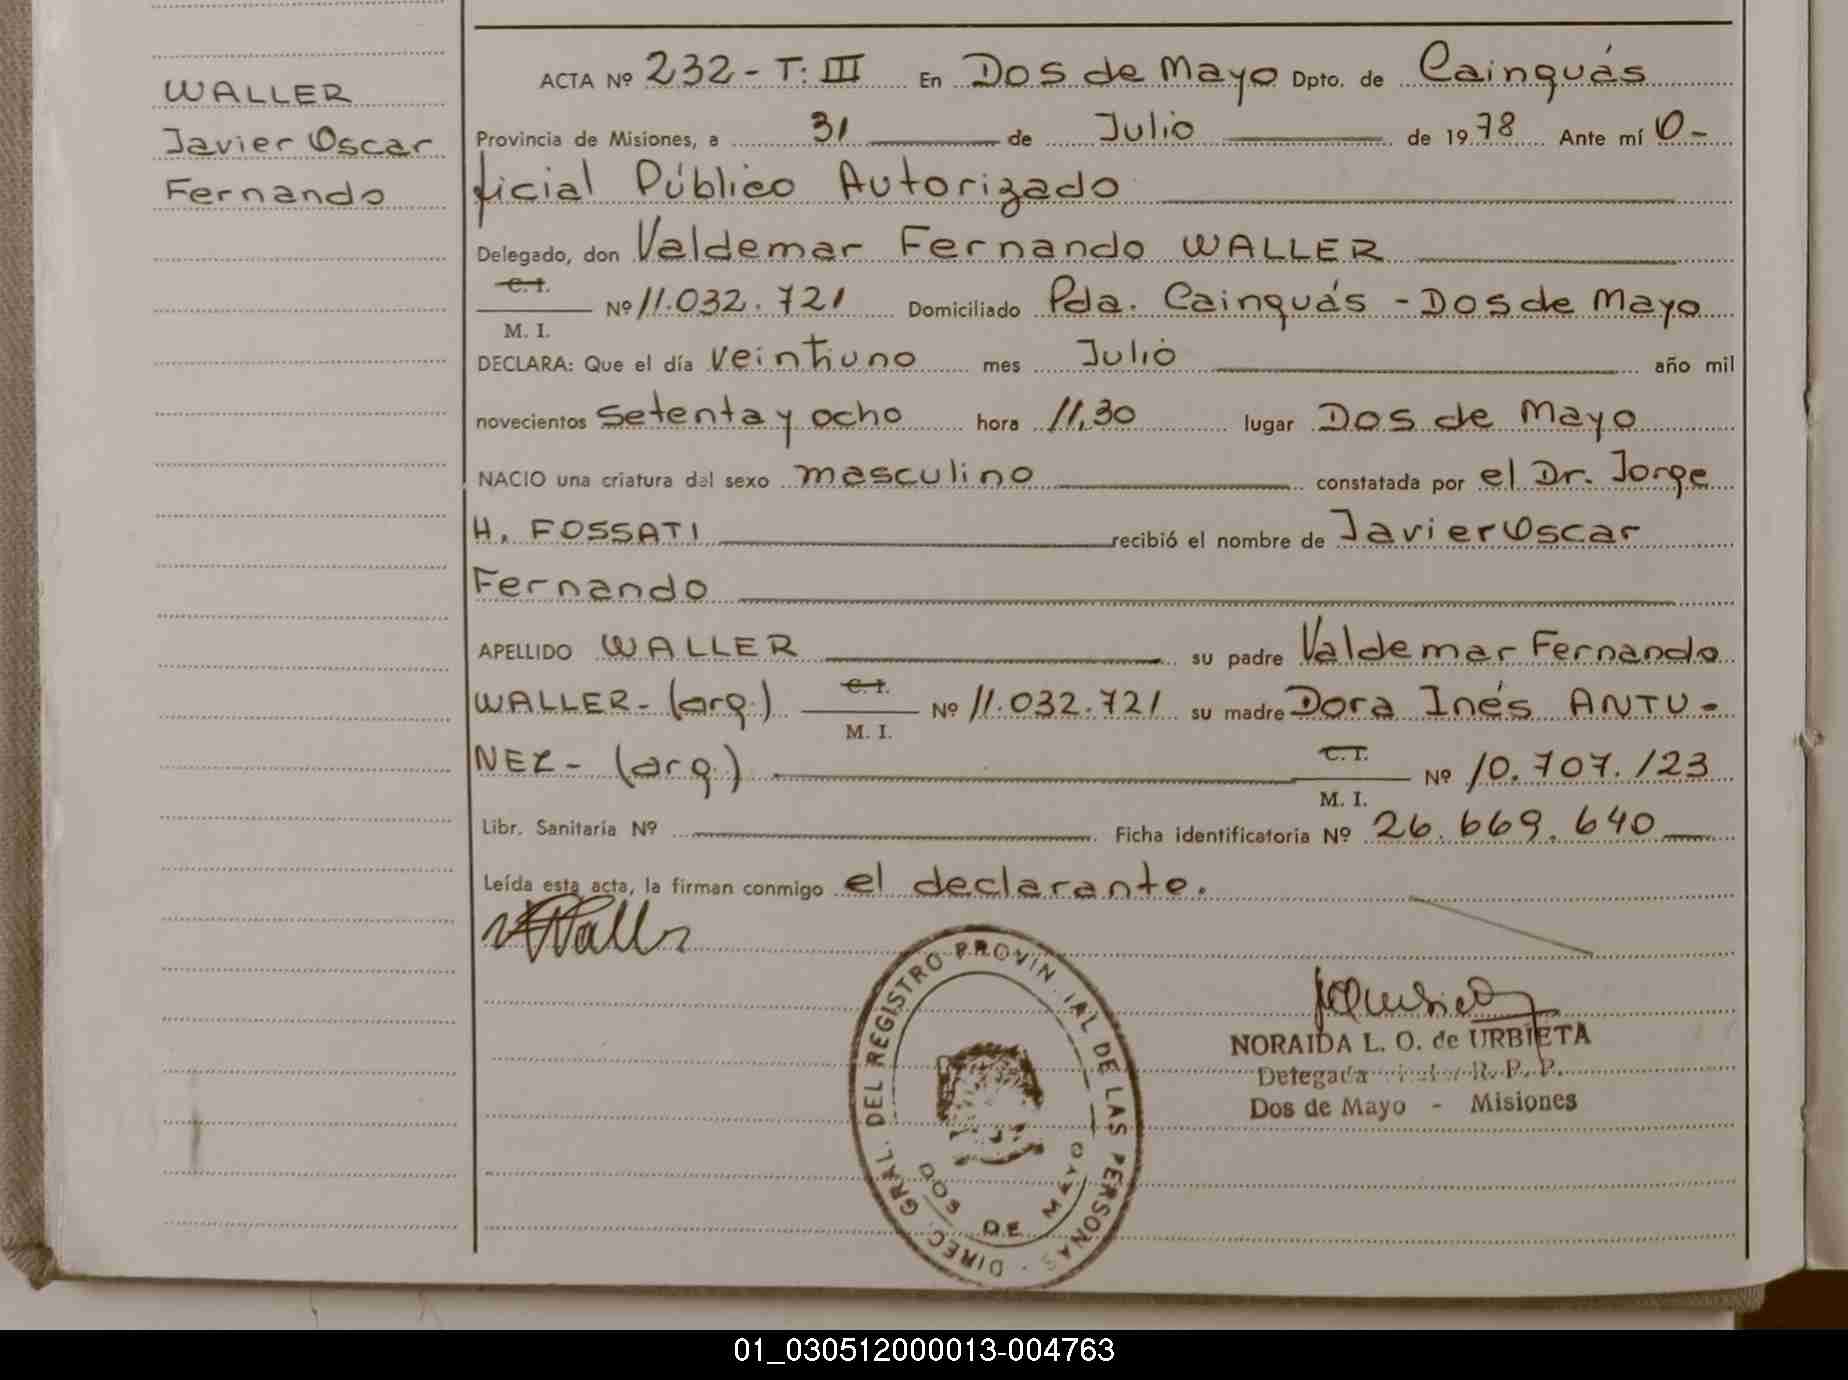 WALLER
Javier Oscar
Fernando
ACTA Nº 232 - T: III En Dos de Mayo Dpto. de Cainguás
Provincia de Misiones, a 31 de Julio de 1978 Ante mí O-
ficial Público Autorizado
Delegado, don Valdemar Fernando WALLER
C. I.
Nº 11.032.721 Domiciliado Pda. Cainguás - Dos de Mayo
M. I.
DECLARA: Que el día veintiuno mes Julio año mil
novecientos setenta y ocho hora 11,30 lugar Dos de Mayo
NACIO una criatura del sexo masculino constatada por el Dr. Jorge
H. FOSSATI recibió el nombre de Javier Oscar
Fernando
APELLIDO WALLER su padre Valdemar Fernando
WALLER - (arg.) C. I. Nº 11.032.721 su madre Dora Inés ANTU-
M. I.
NEZ - (arg.) C. I. Nº 10.707.123
M. I.
Libr. Sanitaría Nº Ficha identificatoria Nº 26.669.640
Leída esta acta, la firman conmigo el declarante.
DIREC. GRAL. DEL REGISTRO PROVIN. IAL DE LAS PERSONAS
DOS DE MAYO
NORAIDA L. O. de URBIETA
Delegada R. P. P.
Dos de Mayo - Misiones
01_030512000013-004763